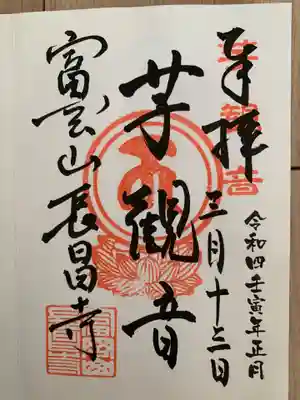 奉拝
三月十三日
令和四壬寅年正月
芋観音
富雲山長昌寺
芋観音